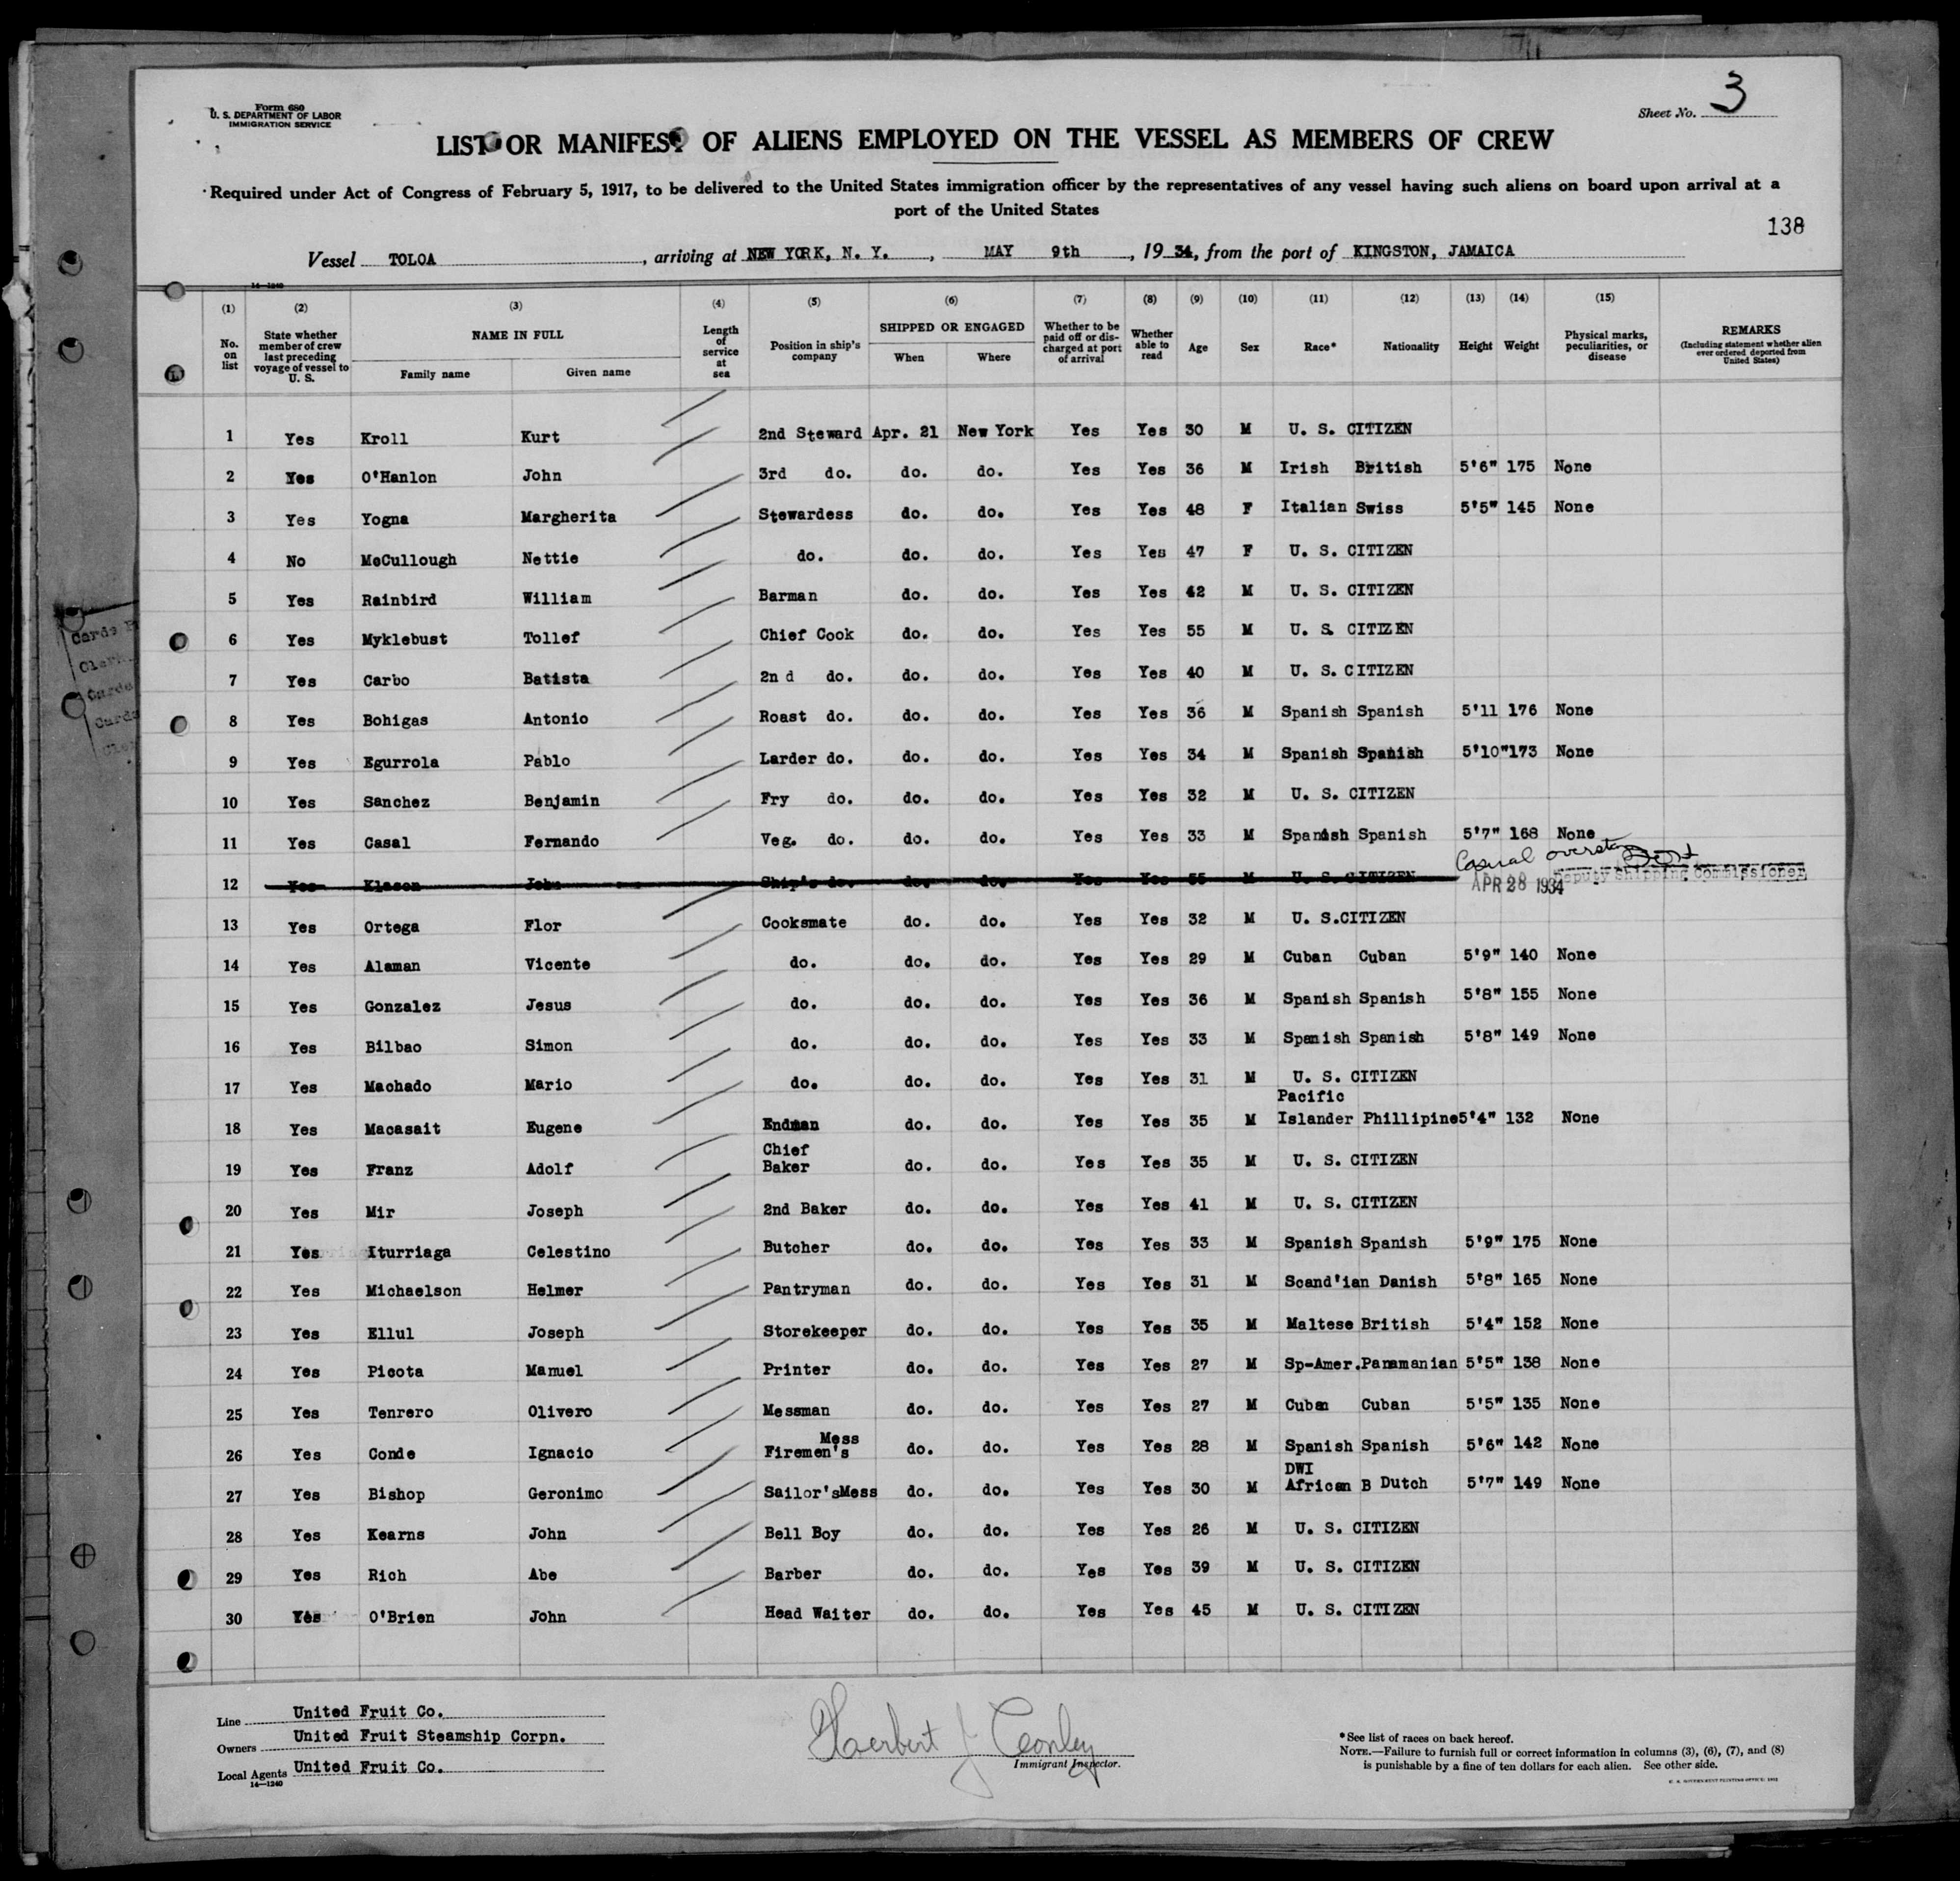 Form 680
U. S. DEPARTMENT OF LABOR
IMMIGRATION SERVICE
Sheet No. 3
LIST OR MANIFEST OF ALIENS EMPLOYED ON THE VESSEL AS MEMBERS OF CREW
Required under Act of Congress of February 5, 1917, to be delivered to the United States immigration officer by the representatives of any vessel having such aliens on board upon arrival at a
port of the United States
138
Vessel TOLOA, arriving at NEW YORK, N. Y., MAY 9th, 19 34, from the port of KINGSTON, JAMAICA
14—1240
(1) (2) (3) (4) (5) (6) (7) (8) (9) (10) (11) (12) (13) (14) (15)
No. on list State whether member of crew last preceding voyage of vessel to U. S. NAME IN FULL Family name Given name Length of service at sea Position in ship's company SHIPPED OR ENGAGED When Where Whether to be paid off or discharged at port of arrival Whether able to read Age Sex Race* Nationality Height Weight Physical marks, peculiarities, or disease REMARKS (Including statement whether alien ever ordered deported from United States)
1 Yes Kroll Kurt 2nd Steward Apr. 21 New York Yes Yes 30 M U. S. CITIZEN
2 Yes O'Hanlon John 3rd do. do. do. Yes Yes 36 M Irish British 5'6" 175 None
3 Yes Yogna Margherita Stewardess do. do. Yes Yes 48 F Italian Swiss 5'5" 145 None
4 No McCullough Nettie do. do. do. Yes Yes 47 F U. S. CITIZEN
5 Yes Rainbird William Barman do. do. Yes Yes 42 M U. S. CITIZEN
6 Yes Myklebust Tollef Chief Cook do. do. Yes Yes 55 M U. S. CITIZEN
7 Yes Carbo Batista 2nd do. do. do. Yes Yes 40 M U. S. CITIZEN
8 Yes Bohigas Antonio Roast do. do. do. Yes Yes 36 M Spanish Spanish 5'11 176 None
9 Yes Egurrola Pablo Larder do. do. do. Yes Yes 34 M Spanish Spanish 5'10" 173 None
10 Yes Sanchez Benjamin Fry do. do. do. Yes Yes 32 M U. S. CITIZEN
11 Yes Casal Fernando Veg. do. do. do. Yes Yes 33 M Spanish Spanish 5'7" 168 None
12 Yes Klason John Ship's do. do. do. Yes Yes 55 M U. S. CITIZEN Casual overstay APR 28 1934 Deputy Shipping Commissioner
13 Yes Ortega Flor Cooksmate do. do. Yes Yes 32 M U. S.CITIZEN
14 Yes Alaman Vicente do. do. do. Yes Yes 29 M Cuban Cuban 5'9" 140 None
15 Yes Gonzalez Jesus do. do. do. Yes Yes 36 M Spanish Spanish 5'8" 155 None
16 Yes Bilbao Simon do. do. do. Yes Yes 33 M Spanish Spanish 5'8" 149 None
17 Yes Machado Mario do. do. do. Yes Yes 31 M U. S. CITIZEN
18 Yes Macasait Eugene Endman do. do. Yes Yes 35 M Pacific Islander Phillipine 5'4" 132 None
19 Yes Franz Adolf Chief Baker do. do. Yes Yes 35 M U. S. CITIZEN
20 Yes Mir Joseph 2nd Baker do. do. Yes Yes 41 M U. S. CITIZEN
21 Yes Iturriaga Celestino Butcher do. do. Yes Yes 33 M Spanish Spanish 5'9" 175 None
22 Yes Michaelson Helmer Pantryman do. do. Yes Yes 31 M Scand'ian Danish 5'8" 165 None
23 Yes Ellul Joseph Storekeeper do. do. Yes Yes 35 M Maltese British 5'4" 152 None
24 Yes Picota Manuel Printer do. do. Yes Yes 27 M Sp-Amer. Panamanian 5'5" 138 None
25 Yes Tenrero Olivero Messman do. do. Yes Yes 27 M Cuban Cuban 5'5" 135 None
26 Yes Conde Ignacio Firemen's Mess do. do. Yes Yes 28 M Spanish Spanish 5'6" 142 None
27 Yes Bishop Geronimo Sailor'sMess do. do. Yes Yes 30 M DWI African B Dutch 5'7" 149 None
28 Yes Kearns John Bell Boy do. do. Yes Yes 26 M U. S. CITIZEN
29 Yes Rich Abe Barber do. do. Yes Yes 39 M U. S. CITIZEN
30 Yes O'Brien John Head Waiter do. do. Yes Yes 45 M U. S. CITIZEN
Line United Fruit Co.
Owners United Fruit Steamship Corpn.
Local Agents United Fruit Co.
14—1240
Herbert J Conley
Immigrant Inspector.
*See list of races on back hereof.
NOTE.—Failure to furnish full or correct information in columns (3), (6), (7), and (8)
is punishable by a fine of ten dollars for each alien. See other side.
U. S. GOVERNMENT PRINTING OFFICE: 1932